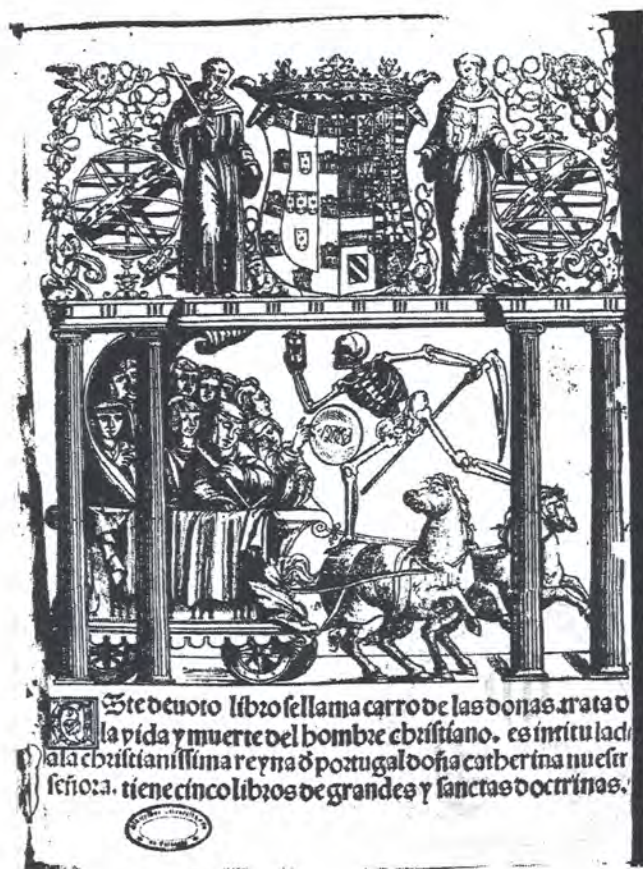 Este deuoto libro se llama carro de las donas. trata d̄
la vida y muerte del hombre christiano. es intitulad
a la christianissima reyna d̄ portugal doña catherina nuestr
señora. tiene cinco libros de grandes y sanctas doctrinas.